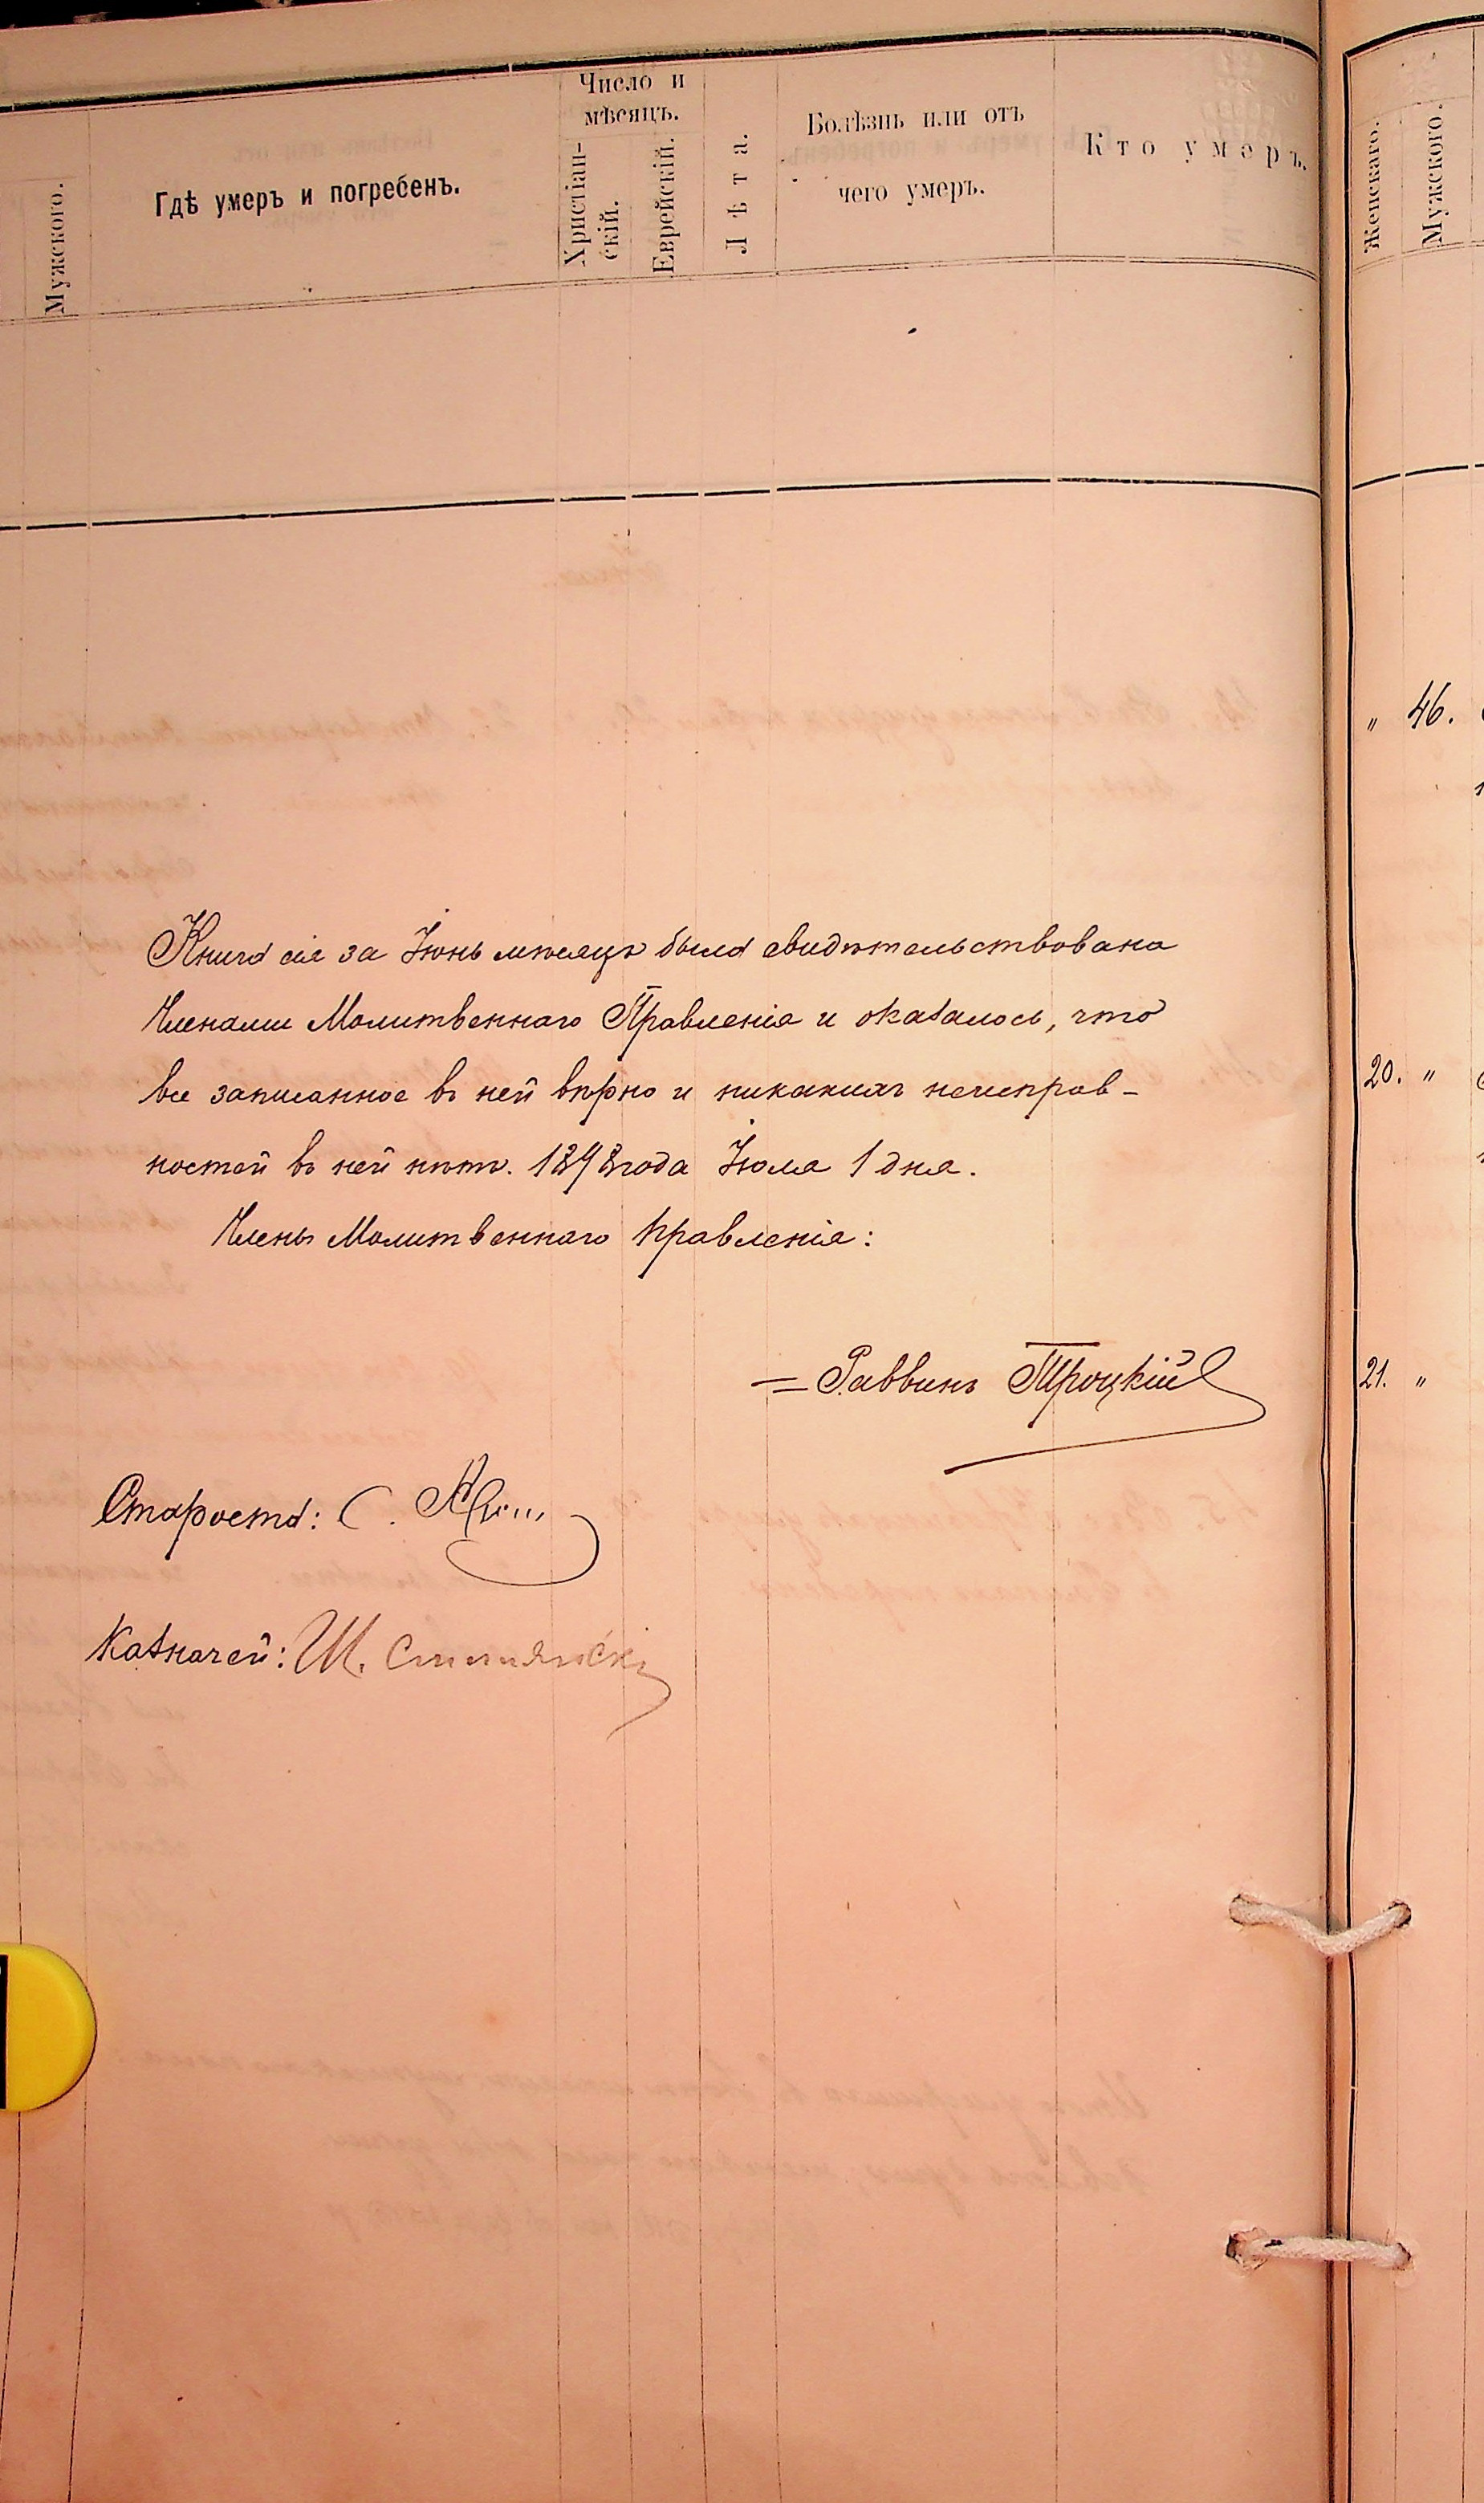 Мужского.
Гдѣ умеръ и погребенъ.
Число и
мѣсяцъ.
Христіан-
скій.
Еврейскій.
Лѣта.
Болѣзнь или отъ
чего умеръ.
Кто умеръ.
Женскаго.
Мужского.
" 46.
20. "
21. "
Книга сія за Іюнь мѣсяцъ была свидѣтельствована
Членами Молитвеннаго Правленія и оказалось, что
все записанное въ ней вѣрно и никакихъ неисправ-
ностей въ ней нѣтъ. 1898 года Іюля 1 дня.
Члены Молитвеннаго Правленія:
= Раввинъ Троцкій
Староста: С.
Казначей: Ш.